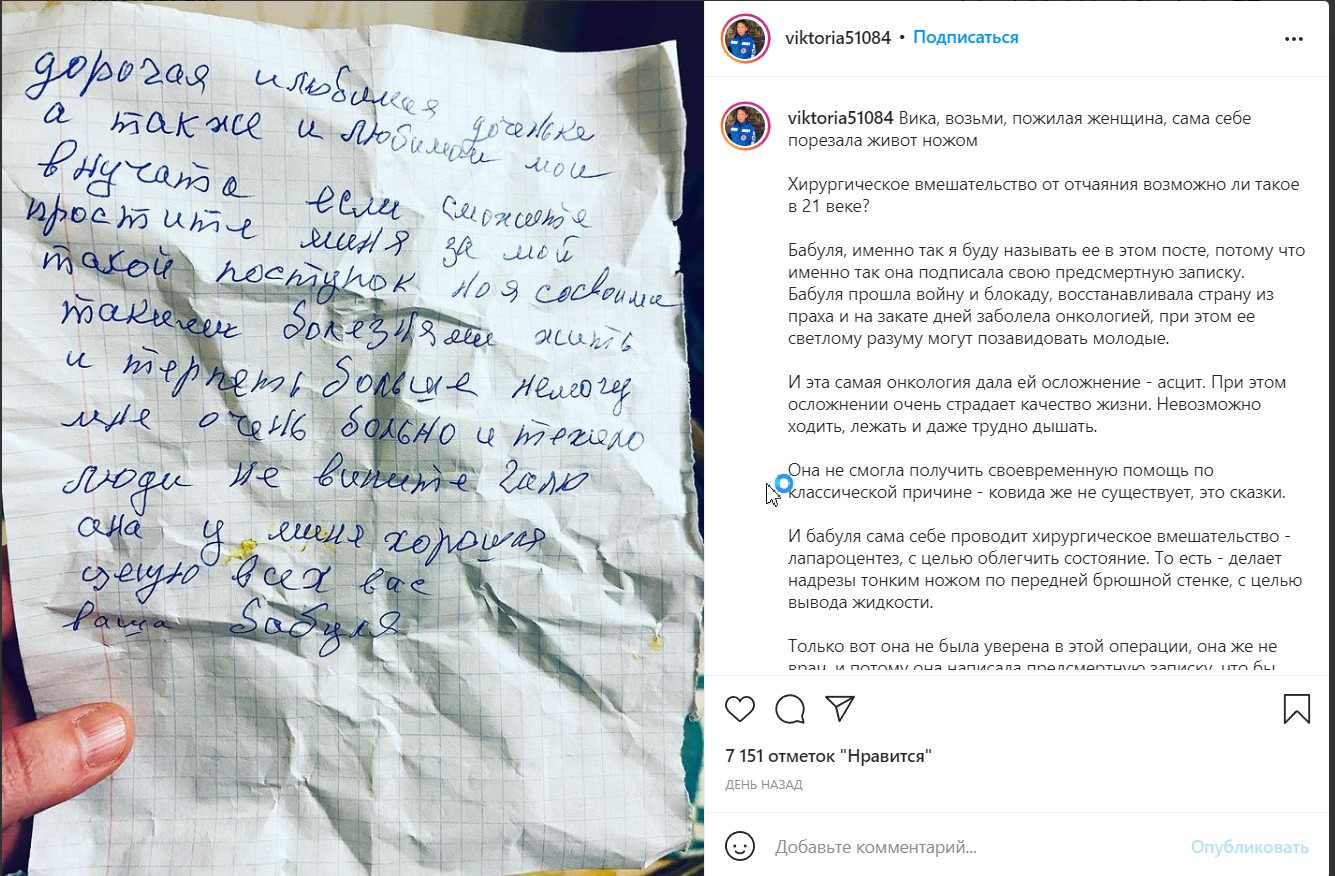 дорогая илюбимая доченька
а также и любимаи мои
внучата если сможите
простите миня за мой
такой поступок но я сосвоима
такими болезнями жить
и терпеть больше немогу
мне очень больно и тежело
люди не вините Галю
она у миня хорошая
целую всех вас
ваша бабуля
viktoria51084 • Подписаться
viktoria51084 Вика, возьми, пожилая женщина, сама себе
порезала живот ножом
Хирургическое вмешательство от отчаяния возможно ли такое
в 21 веке?
Бабуля, именно так я буду называть ее в этом посте, потому что
именно так она подписала свою предсмертную записку.
Бабуля прошла войну и блокаду, восстанавливала страну из
праха и на закате дней заболела онкологией, при этом ее
светлому разуму могут позавидовать молодые.
И эта самая онкология дала ей осложнение - асцит. При этом
осложнении очень страдает качество жизни. Невозможно
ходить, лежать и даже трудно дышать.
Она не смогла получить своевременную помощь по
классической причине - ковида же не существует, это сказки.
И бабуля сама себе проводит хирургическое вмешательство -
лапароцентез, с целью облегчить состояние. То есть - делает
надрезы тонким ножом по передней брюшной стенке, с целью
вывода жидкости.
Только вот она не была уверена в этой операции, она же не
врач, и потому она написала предсмертную записку, что бы
7 151 отметок "Нравится"
ДЕНЬ НАЗАД
Добавьте комментарий...
Опубликовать